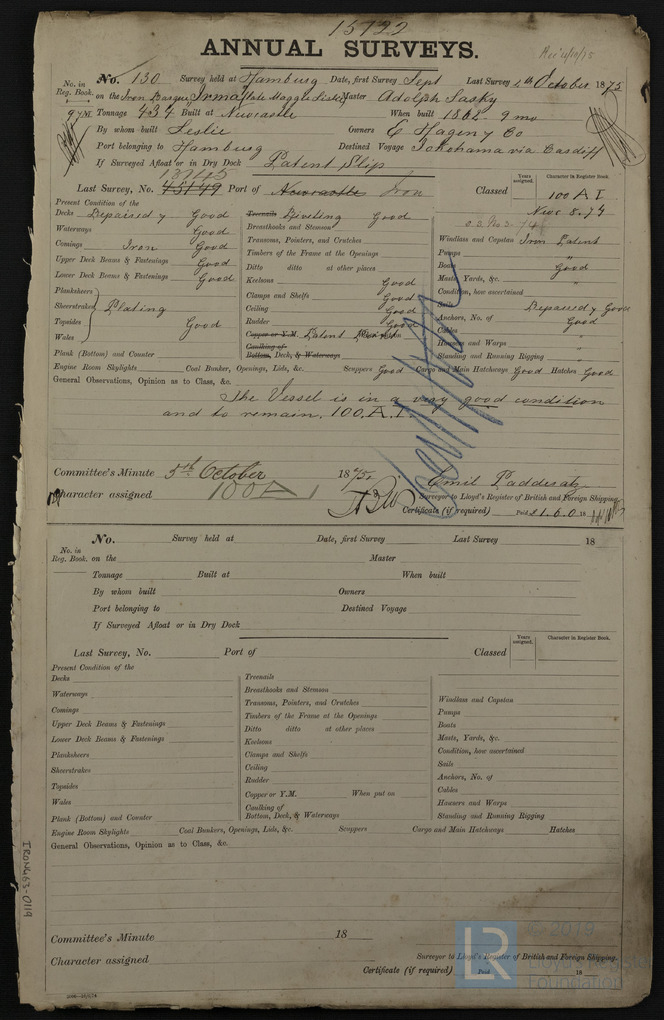 15722
ANNUAL SURVEYS.
No. in Reg. Book. No. 130 Survey held at Hamburg Date, first Survey Sept Last Survey 4th October 1875
on the Iron Barque Irma (late Maggie Leslie) Master Adolph Sasky
Tonnage 434 Built at Newcastle When built 1868 - 9 mo
By whom built Leslie Owners C Hagen y Co
Port belonging to Hamburg Destined Voyage Yokohama via Cardiff
If Surveyed Afloat or in Dry Dock Patent Slip
Last Survey, No. 45149 Port of Newcastle Iron Classed Years assigned. Character in Register Book.
100 A I
Nwc 8.74
Present Condition of the
Decks Repaired y Good Treenails Riveting Good
Waterways Good Breasthooks and Stemson
Comings Iron Good Transoms, Pointers, and Crutches Windlass and Capstan Iron Patent
Upper Deck Beams & Fastenings Good Timbers of the Frame at the Openings Pumps "
Lower Deck Beams & Fastenings Good Ditto ditto at other places Boats Good
Planksheers Keelsons Good Masts, Yards, &c.
Sheerstrakes Plating Clamps and Shelfs Good Condition, how ascertained
Topsides Good Ceiling Good Sails Repaired y Good
Wales Rudder Good Anchors, No. of Good
Copper or Y.M. Patent Cables "
Plank (Bottom) and Counter Caulking of Bottom, Deck, & Waterways Hawsers and Warps "
Standing and Running Rigging "
Engine Room Skylights Coal Bunkers, Openings, Lids, &c. Scuppers Good Cargo and Main Hatchways Good Hatches Good
General Observations, Opinion as to Class, &c.
The Vessel is in a very good condition
and to remain 100.A.I.
Committee's Minute 5th October 1875.
Character assigned 100A1
Emil Padderatz
Surveyor to Lloyd's Register of British and Foreign Shipping.
Certificate (if required) Paid £1.6.0 18
No. in Reg. Book. No. Survey held at Date, first Survey Last Survey 18
on the Master
Tonnage Built at When built
By whom built Owners
Port belonging to Destined Voyage
If Surveyed Afloat or in Dry Dock
Last Survey, No. Port of Classed Years assigned. Character in Register Book.
Present Condition of the
Decks Treenails
Waterways Breasthooks and Stemson
Comings Transoms, Pointers, and Crutches Windlass and Capstan
Upper Deck Beams & Fastenings Timbers of the Frame at the Openings Pumps
Lower Deck Beams & Fastenings Ditto ditto at other places Boats
Planksheers Keelsons Masts, Yards, &c.
Sheerstrakes Clamps and Shelfs Condition, how ascertained
Topsides Ceiling Sails
Wales Rudder Anchors, No. of
Copper or Y.M. When put on Cables
Plank (Bottom) and Counter Caulking of Bottom, Deck, & Waterways Hawsers and Warps
Standing and Running Rigging
Engine Room Skylights Coal Bunkers, Openings, Lids, &c. Scuppers Cargo and Main Hatchways Hatches
General Observations, Opinion as to Class, &c.
Committee's Minute 18
Character assigned
Surveyor to Lloyd's Register of British and Foreign Shipping.
Certificate (if required) Paid 18
IRON463-0119
LR © 2019
Lloyd's Register
Foundation